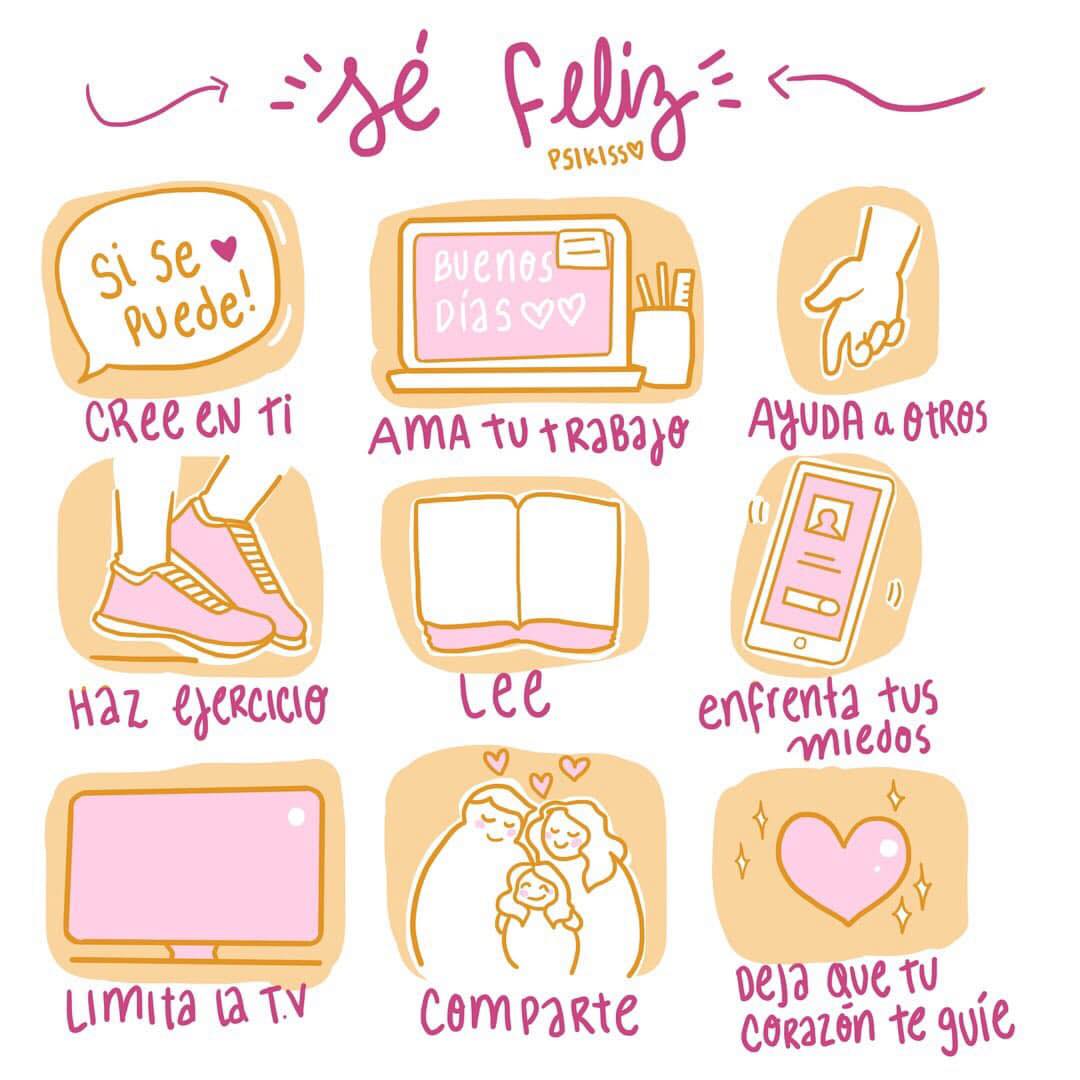 Sé Feliz
PSIKISS♡
Si se ♥
Puede!
Buenos
Días ♡♡
CREE EN TI
AMA TU TRABAJO
AYUDA a OTROS
Haz EJERCICIO
LEE
enfrenta tus
miedos
LIMITA LA T.V
COMPARTE
DEJA QUE TU
CORAZÓN TE GUÍE